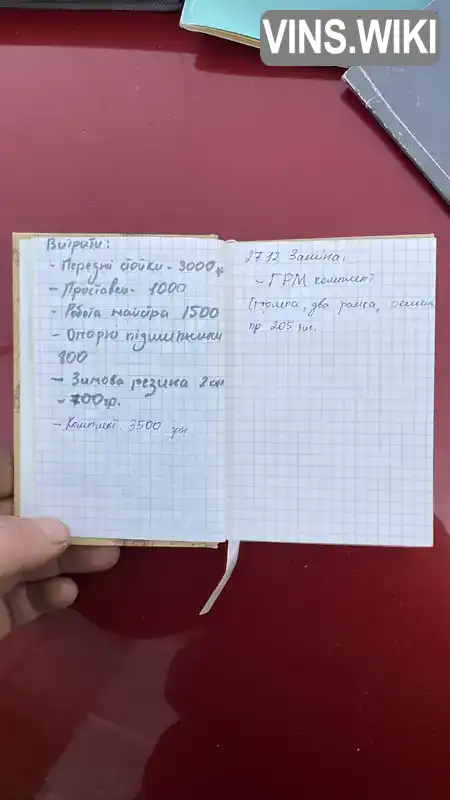 VINS.WIKI
Витрати:
- Передні стойки - 3000
- Проставки - 1000
- Робота майстра 1500
- Опорні підшипники
800
- Зимова резина 2
- 700гр.
- Комплект 3500 грн
27.12 Заміна:
- ГРМ комплект
(помпа, два ролика, ремень
пр 205 тис.